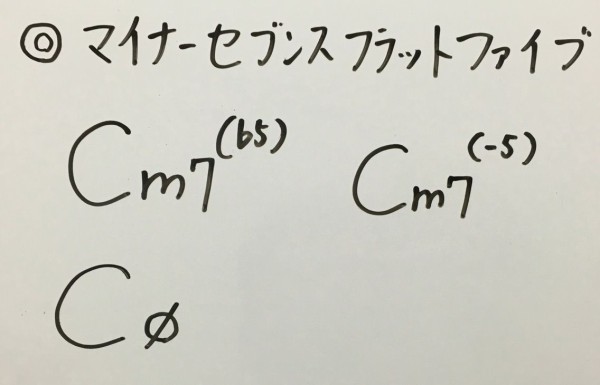 ◎ マイナーセブンスフラットファイブ
Cm7(b5) Cm7(-5)
Cø